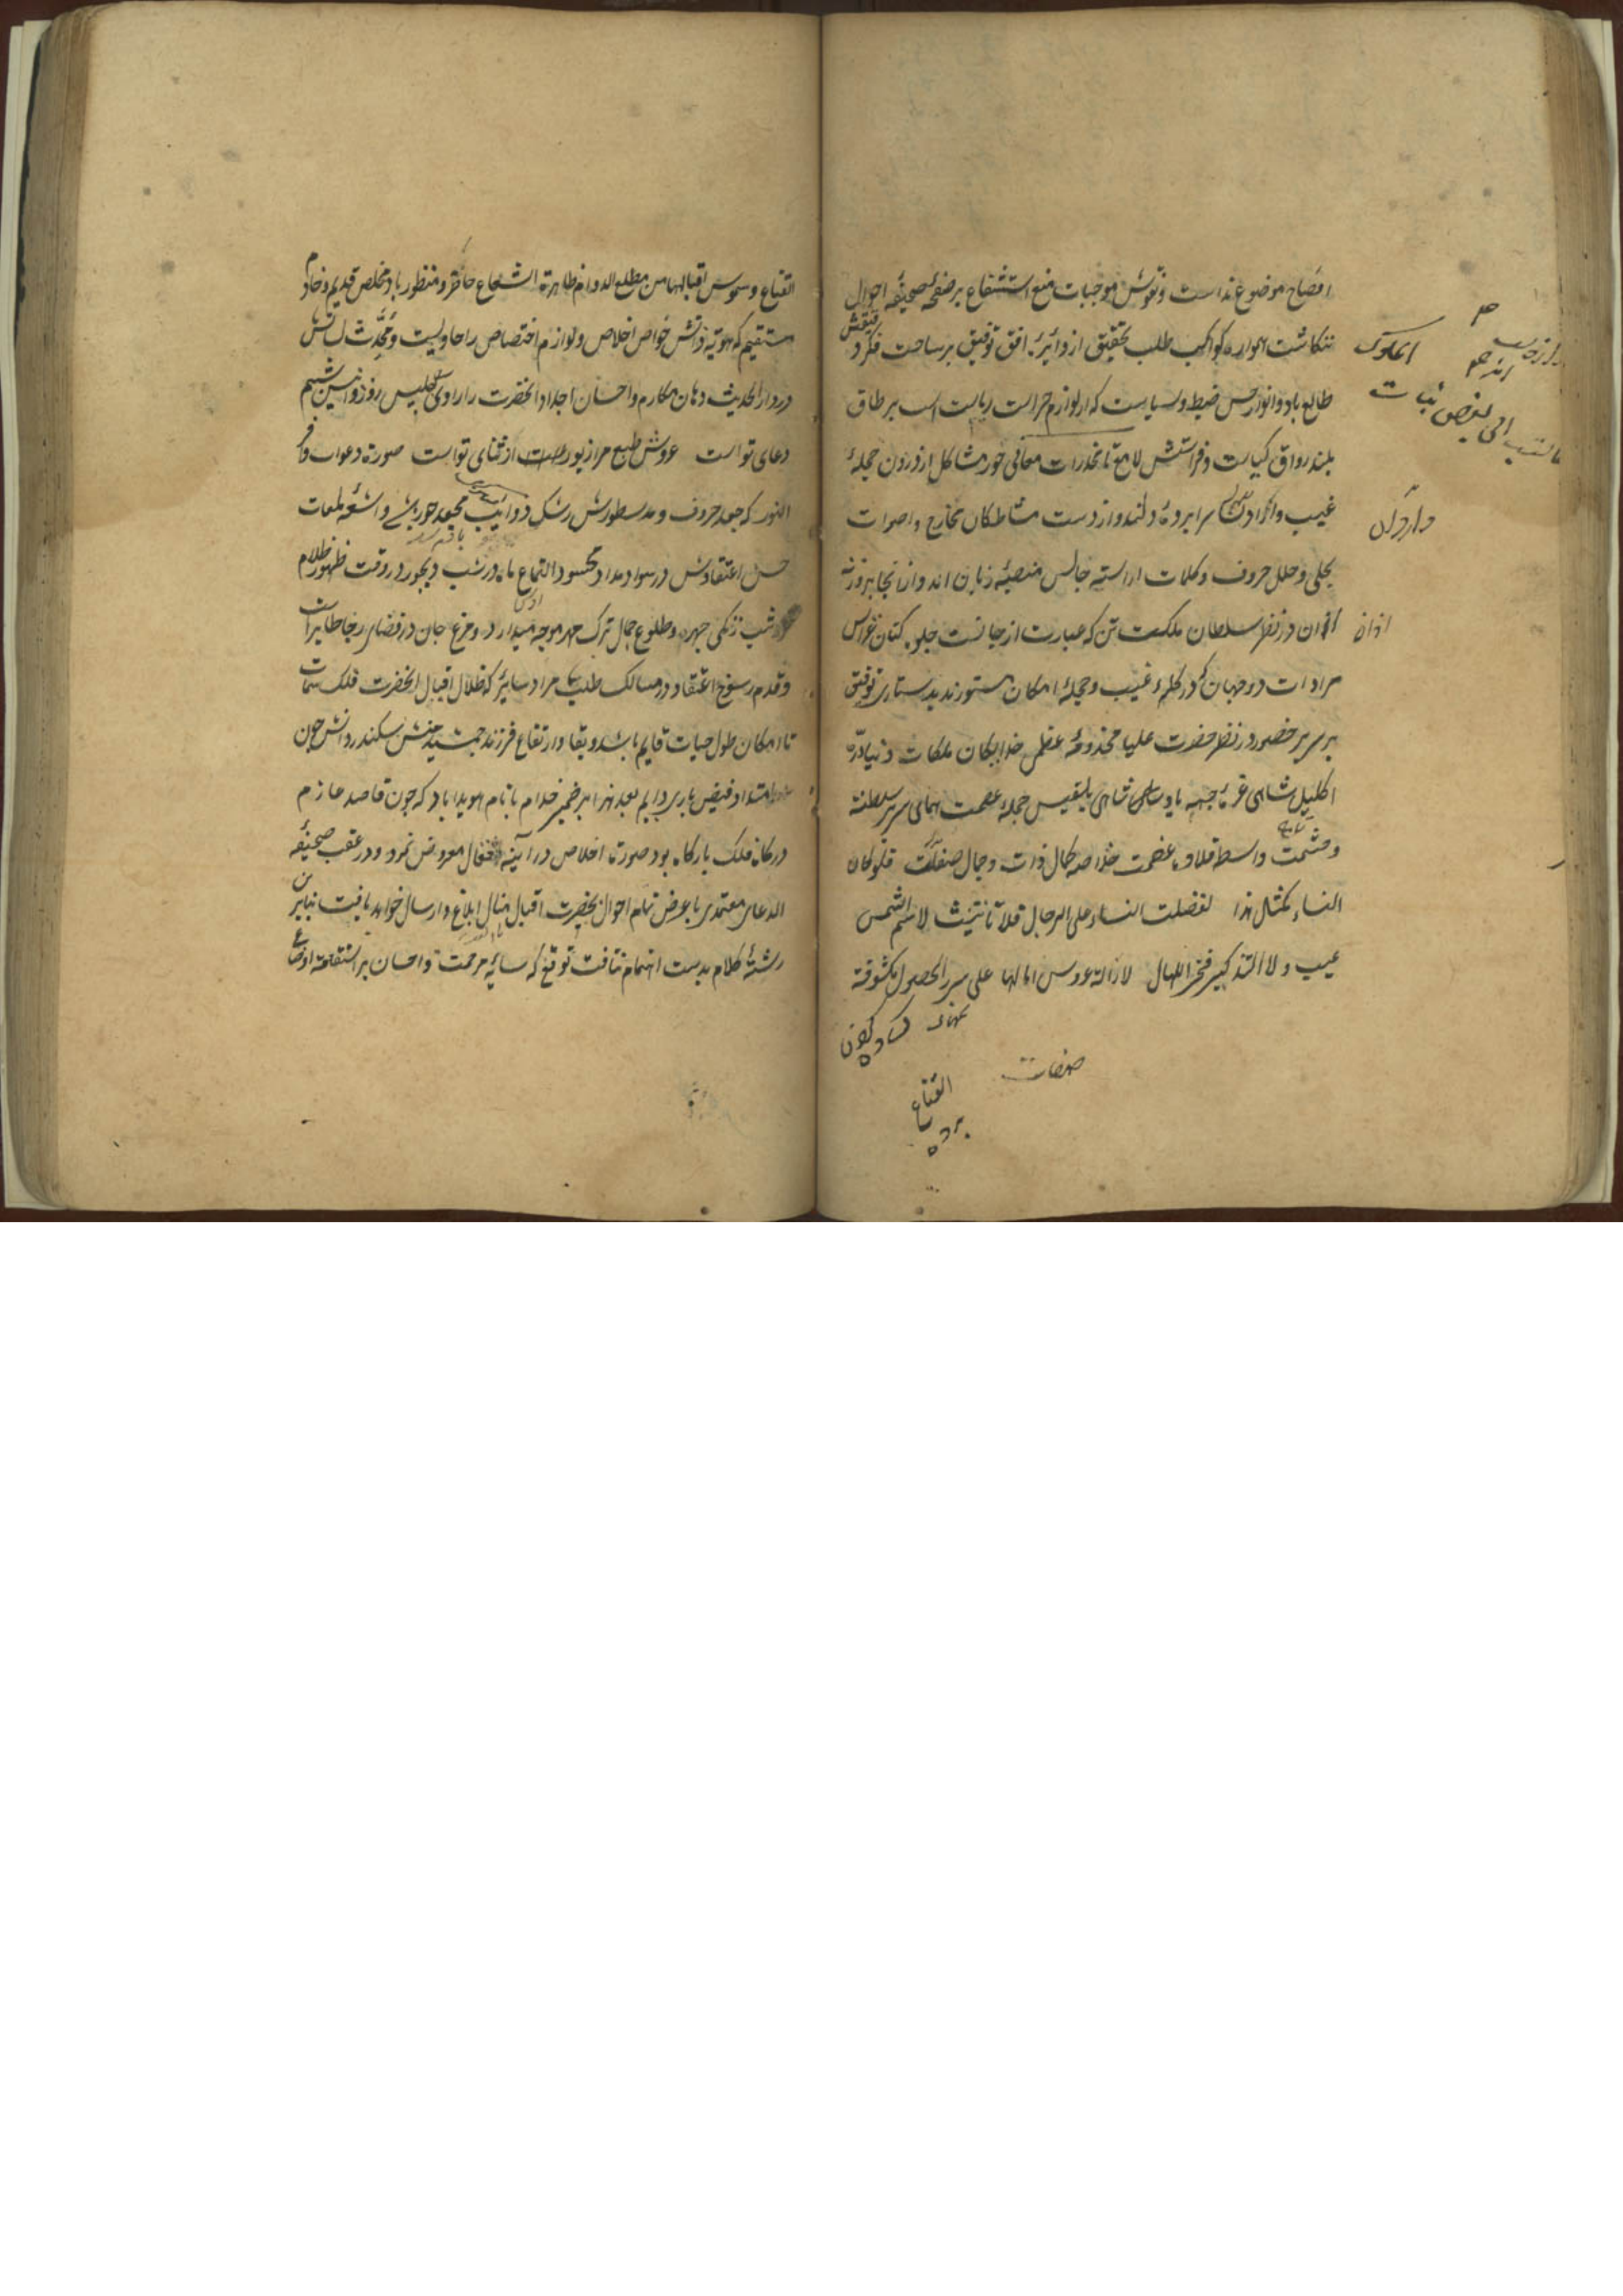 افصاح موضوع نداست و نقوش موجبات منع استشفاع بر صفحه صحیفه احوال
ننکاشت همواره کواکب طلب تحقیق از دایره افق توفیق بر ساحت فکر دقیقش
طالع باد و انوار حسن ضبط و سیاست که از لوازم حراست ریاست است بر طاق
بلند رواق کیاست و فراستش لامع تا مخدرات معانی خور مشاکل از درون حجلهٔ
غیب و سرا پردهٔ دلند و از دست مشاطکان مخارج و اصوات
بحلی و حلل حروف و کلمات اراسته جالس منصهٔ زبان اند و از انجا بر
اذان در نظر سلطان ملکت تن که عبارت از جانست جلوه کنان عرایس
مرادات دو جهان که در کلهٔ غیب و حجلهٔ امکان مستورند بدستاری توفیق
بر سریر حضور در نظر حضرت علیا مخدومهٔ عظمی خدایکان ملکات دنیا درّهٔ
اکلیل شاهی غرهٔ جبههٔ پادشاهی بلقیس حجلهٔ عصمت همای سریر سلطنة
و حشمت واسطه قلادهٔ عظمت خلاصه کمال ذات و جمال صفات فلو کان
النساء کمثل هذا لفضلت النساء علی الرجال فلا تانیث لاسم الشمس
عیب و لا التذکیر فخر للهلال لا زالت عروس امالها علی سریر الحصول مکشوفة
صفات
القناع
پرده
القناع و شموس اقبالها من مطلع الدوام ظاهرة الشعاع حاضر و منظور باد مخلص قدیم و خادم
مستقیم که هویة ذاتش خواص اخلاص و لوازم اختصاص را حاویست و محدّث لسانش
در دار الحدیث دهان مکارم و احسان اجداد انحضرت را راوی جلیس روز و انیس شبم
دعای تو است عروس طبع مرا زیور از ثنای تو است صورة دعوات
النور که جعد حروف و مد سطورش رشک ذوایب مجعد حور و اشعهٔ لمعات
حسن اعتقادش در سواد مداد محسود التماع ماه در شب دیجور در وقت ظهور ظلام
شب زنکی چهره و طلوع جمال ترک مهر موجه میدارد و مرغ جان در فضای رجا طایر
و قدم رسوخ اعتقاد در مسالک طلب مراد سایر که ظلال اقبال انحضرت فلک سمات
تا امکان طول حیات قایم باشد و بقا و ارتفاع فرزند جمشید منش سکندر دانش چون
امتداد فیض باری دایم بعد هذا بر ضمیر خدام با نام هویدا باد که چون قاصد عازم
درکاه فلک بارکاه بود صورة اخلاص در آیینه معروض نمود و در عقب صحیفهٔ
الدعای معتمدی با عرض تمام احوال بحضرت اقبال منال ابلاغ و ارسال خواهد یافت بنابرین
رشتهٔ کلام بدست اهتمام نتافت توقع که سایهٔ مرحمت و احسان بر استقامة اوضاع